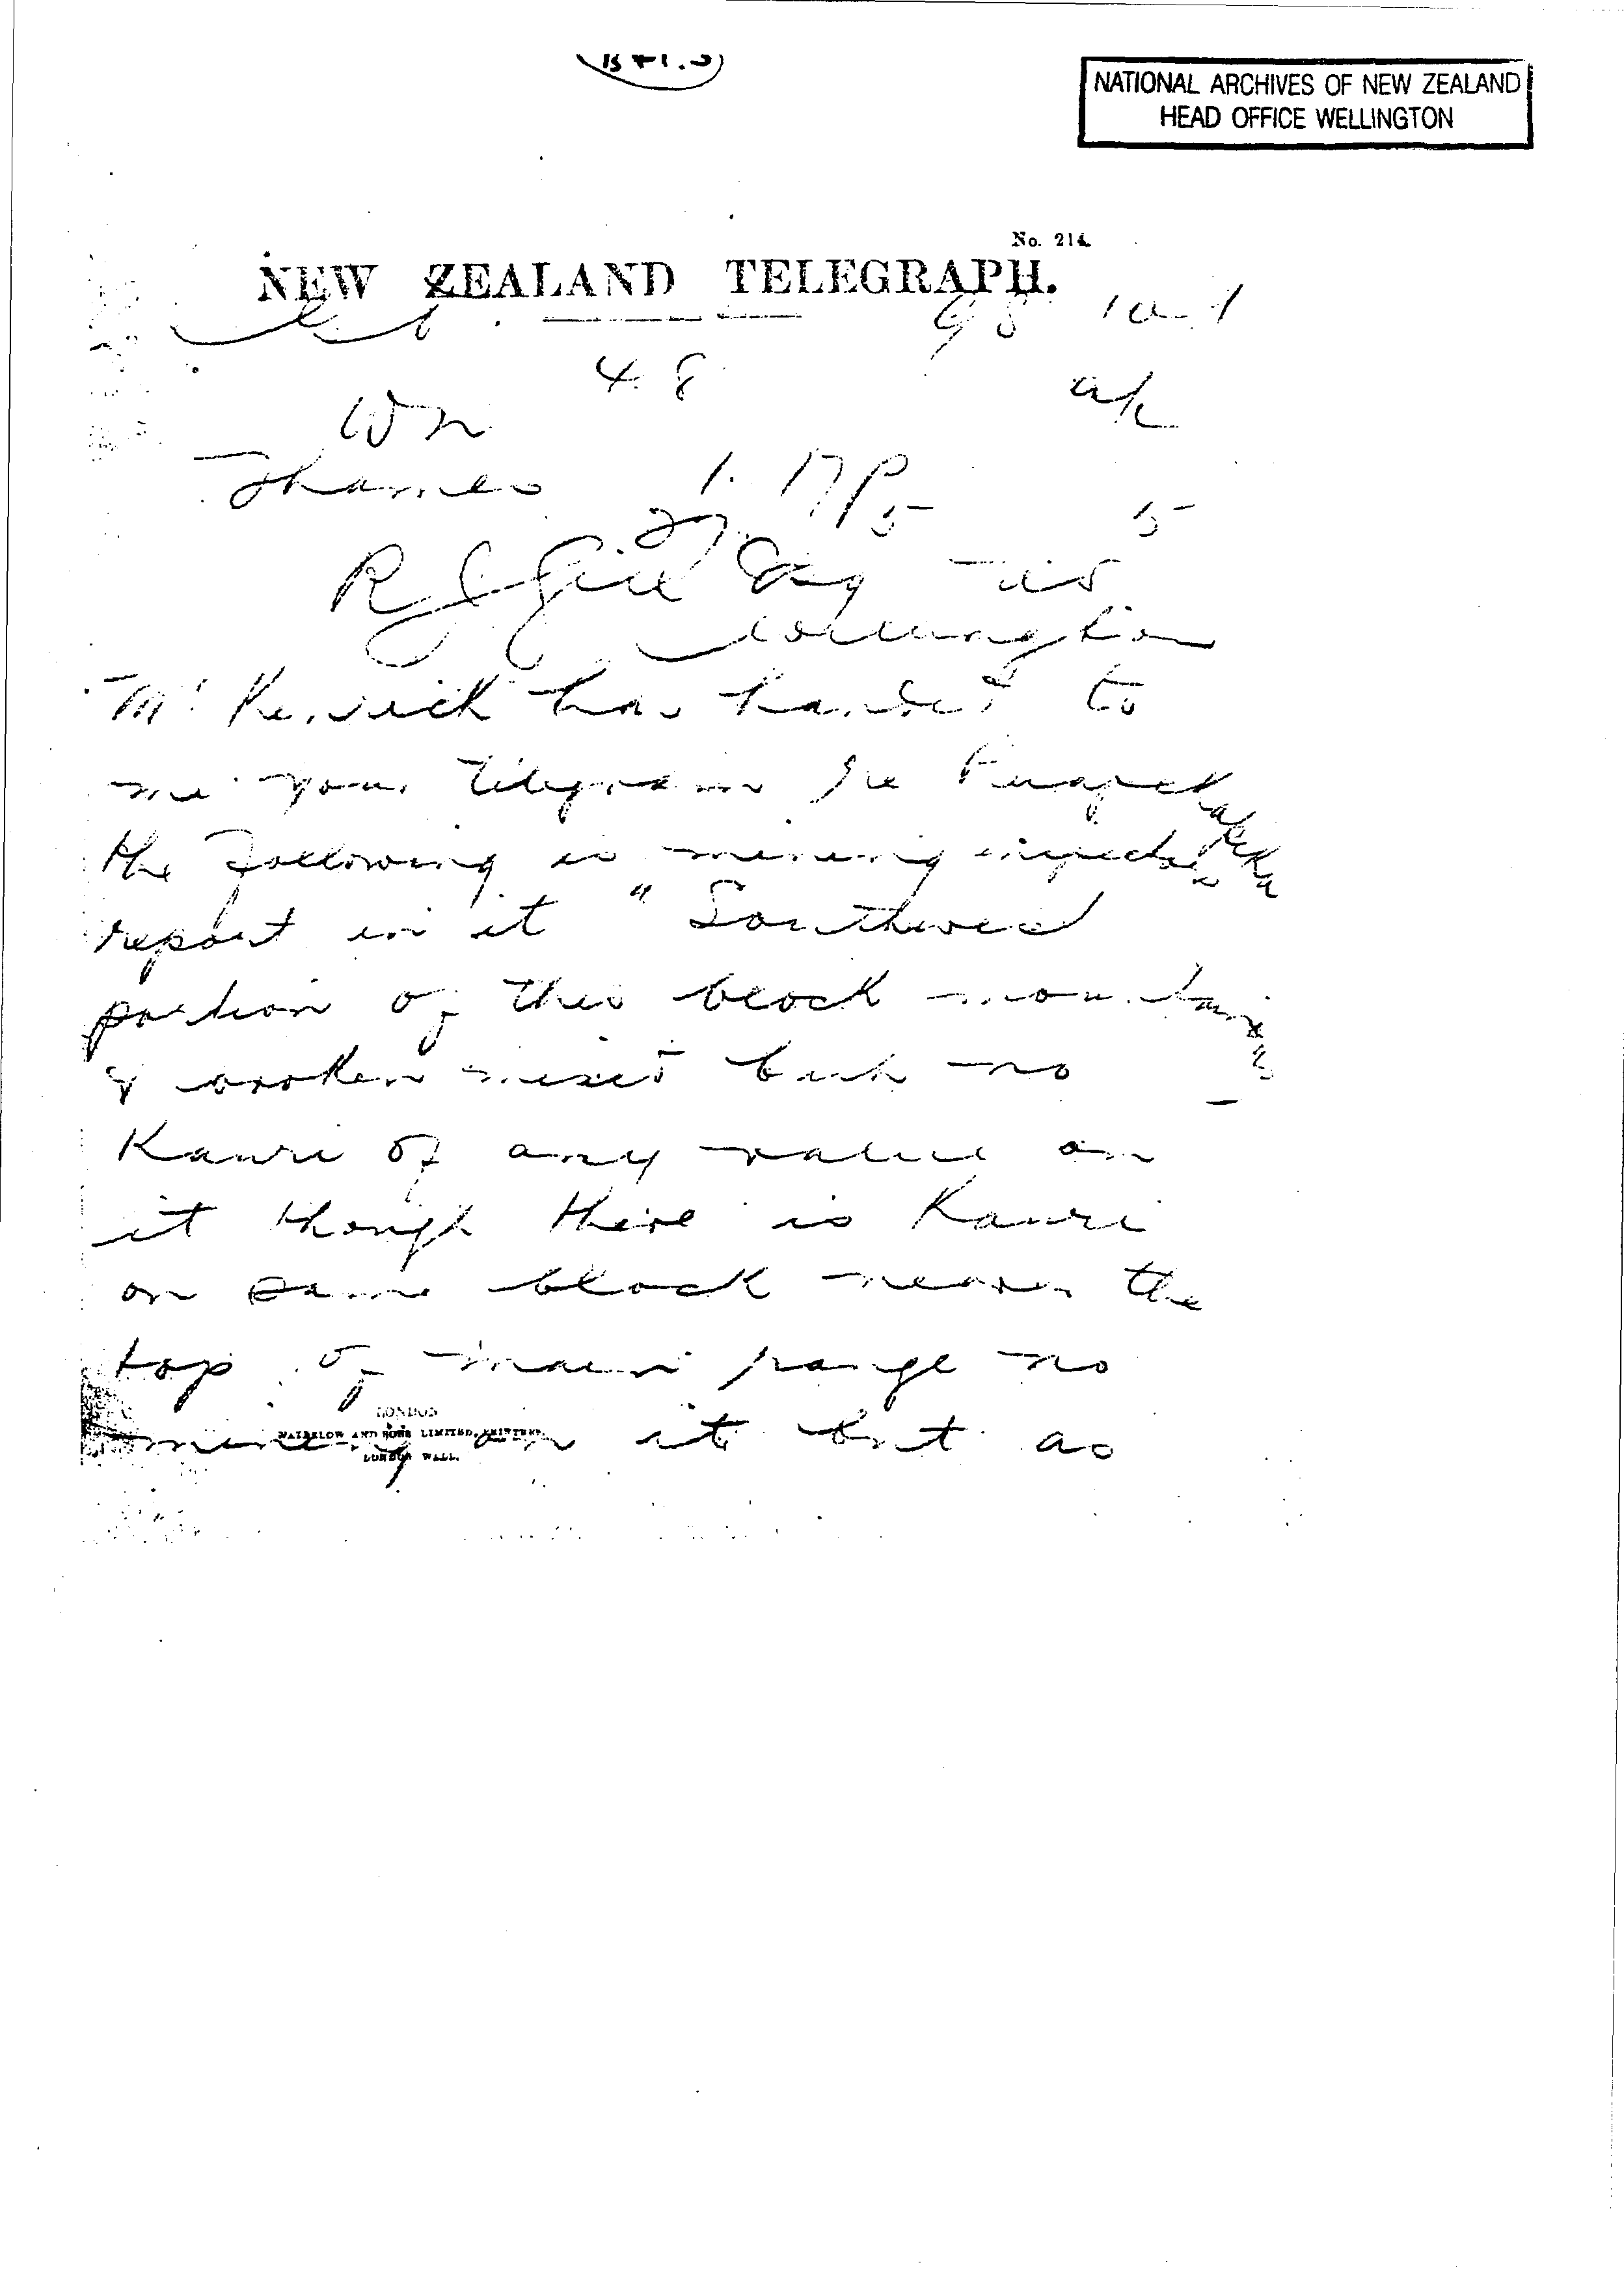 NATIONAL ARCHIVES OF NEW ZEALAND
HEAD OFFICE WELLINGTON
No. 214.
NEW ZEALAND TELEGRAPH.
98
48
Wn ak
Thames 1. 17P 5
27. 5
R J Gill Esq
Wellington
Mr Kenrick has handed to
me your telegram re Puapekapeka
the following is mining inspectors
report on it " Southward
portion of this block mountainous
& broken mixed bush no
Kauri of any value on
it though there is Kauri
on same block near the
top of main range no
mining on it but as
LONDON
WATERLOW AND SONS LIMITED, PRINTERS,
LONDON WALL.